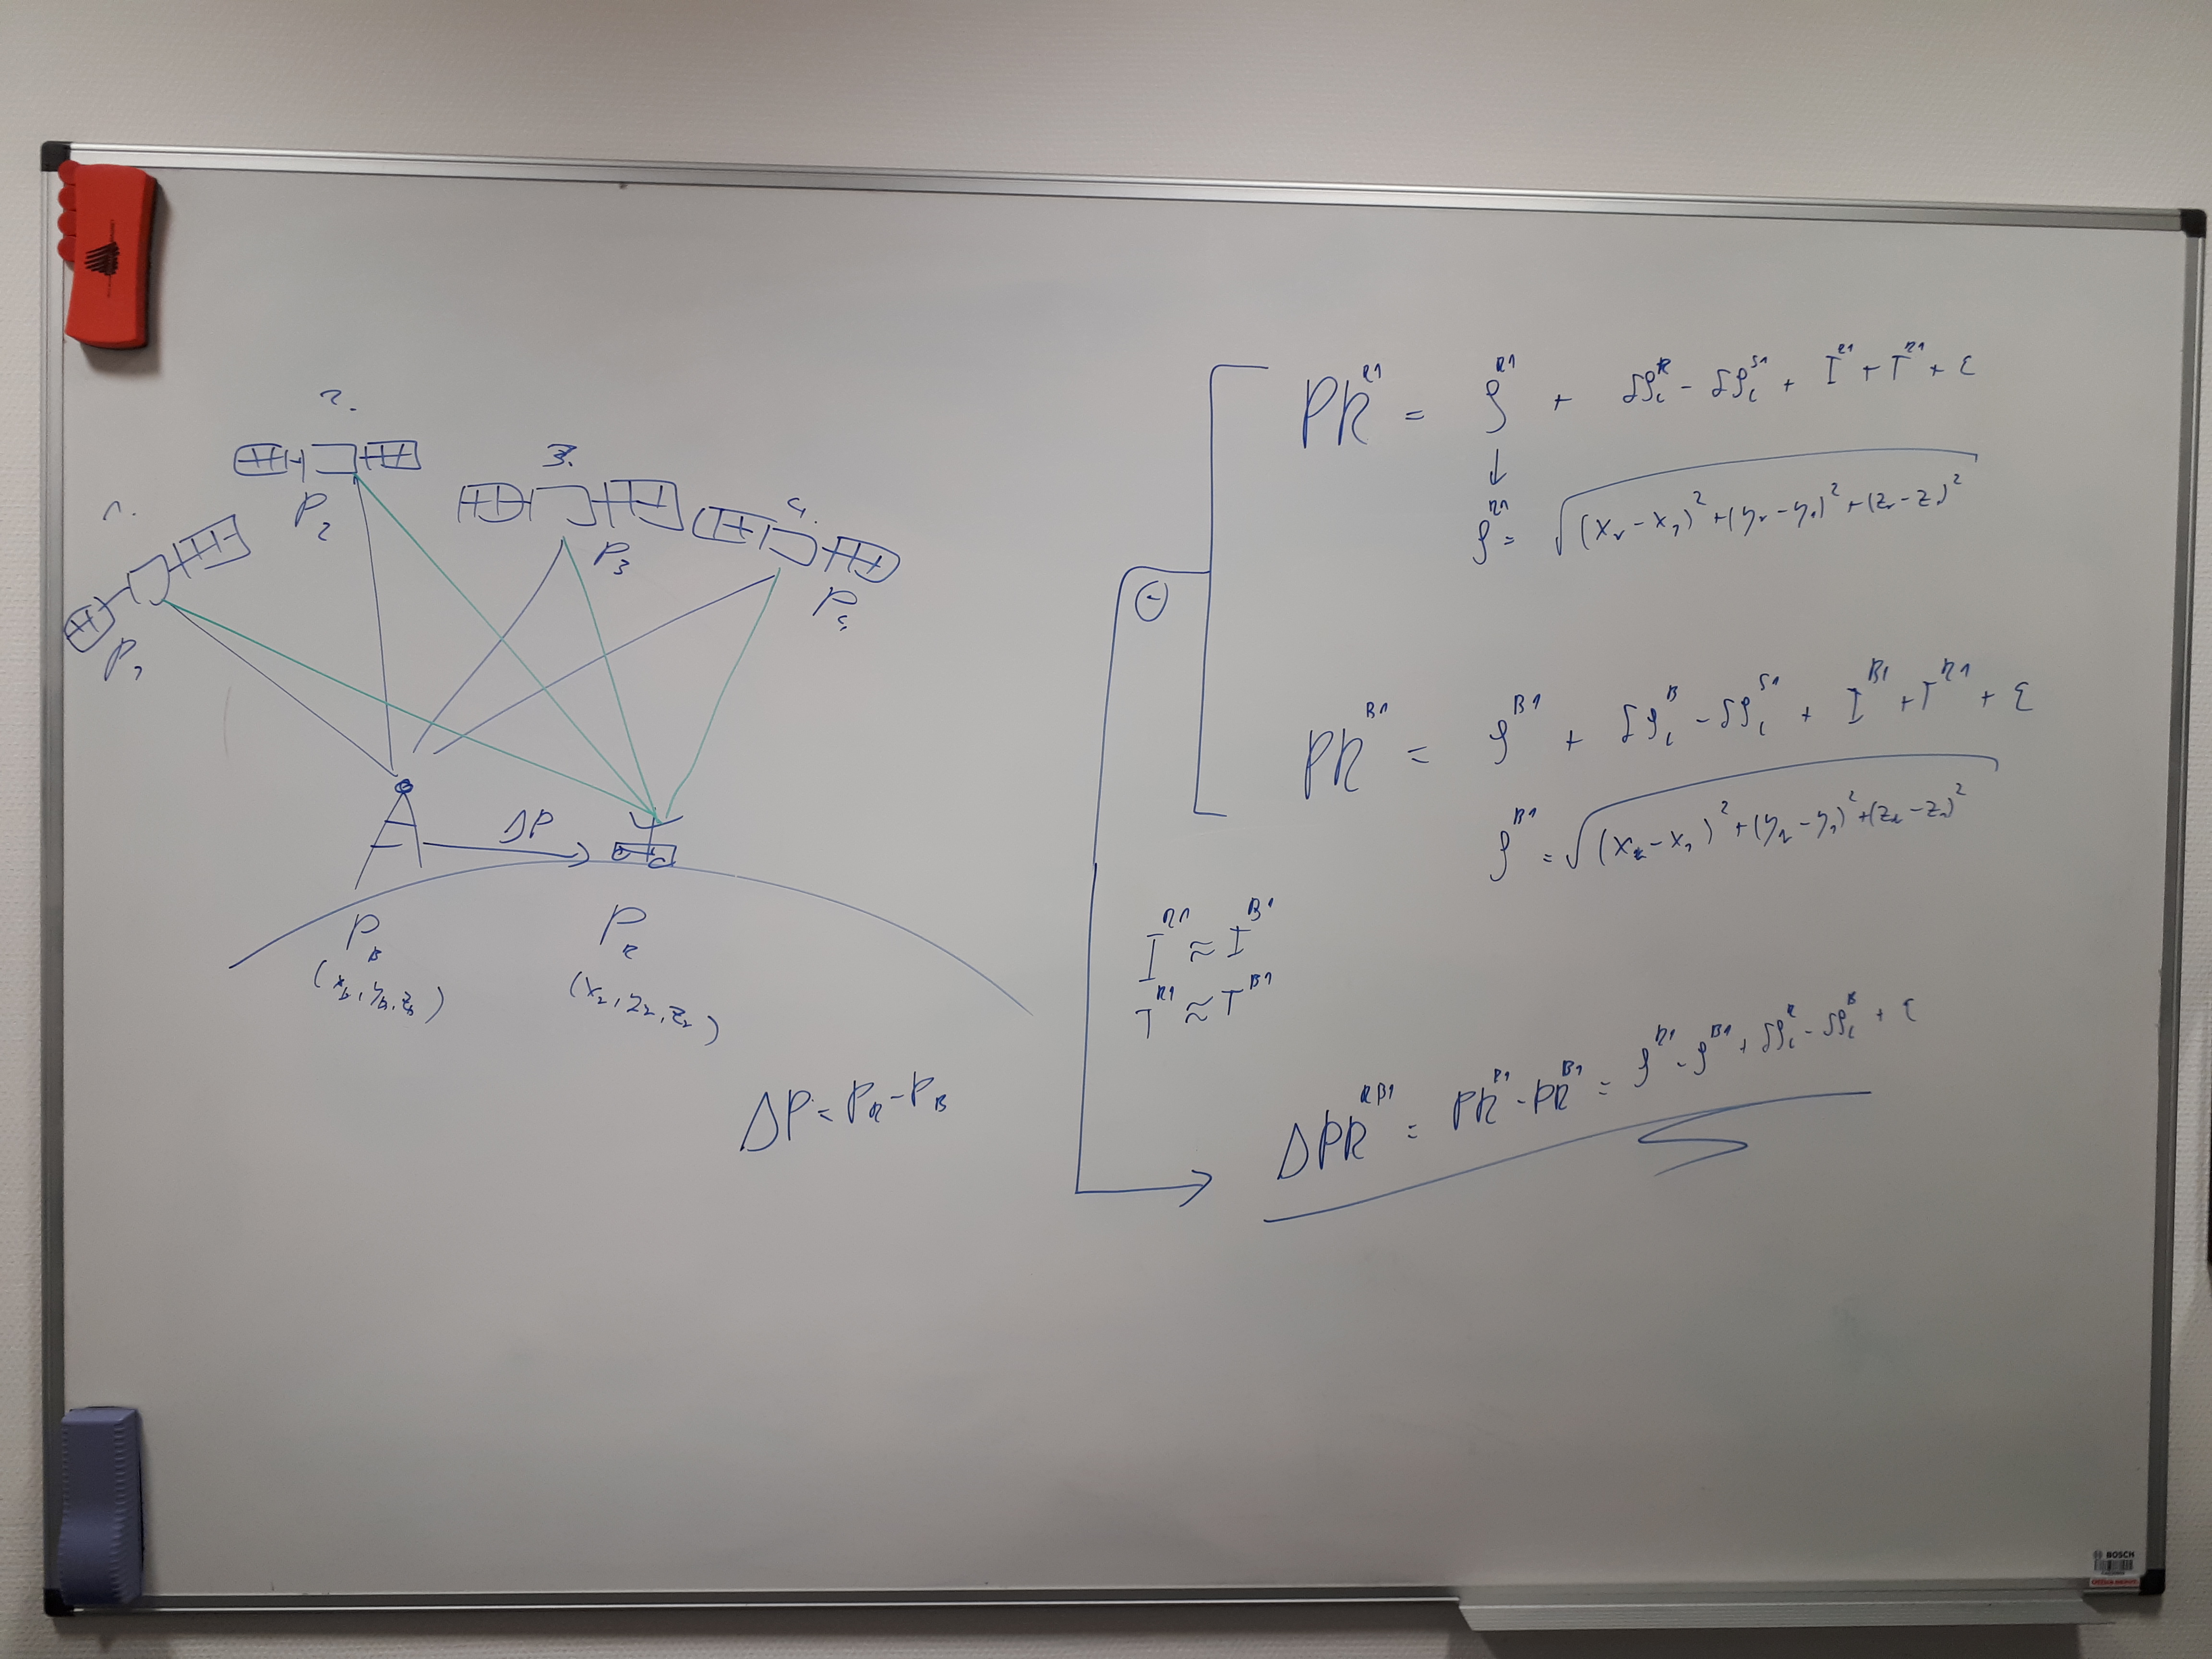 1.
2.
3.
4.
P₁
P₂
P₃
P₄
ΔP
P_B
(x_B, y_B, z_B)
P_R
(x_R, y_R, z_R)
ΔP = P_R - P_B
PR^R1 = ρ^R1 + δρ_c^R - δρ_c^S1 + I^R1 + T^R1 + ε
↓
ρ^R1 = √((x_R - x_1)² + (y_R - y_1)² + (z_R - z_1)²)
⊖
PR^B1 = ρ^B1 + δρ_c^B - δρ_c^S1 + I^B1 + T^R1 + ε
ρ^B1 = √((x_R - x_1)² + (y_R - y_1)² + (z_R - z_1)²)
I^R1 ≈ I^B1
T^R1 ≈ T^B1
ΔPR^RB1 = PR^R1 - PR^B1 = ρ^R1 - ρ^B1 + δρ_c^R - δρ_c^B + ε
BOSCH